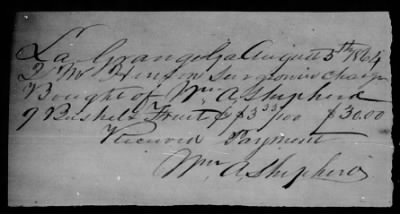 La Grange Ga August 5th 1864
Surgeon in charge
Bought of Wm A Shepherd
9 Bushels Fruit @ $3 33/100 $30.00
Received Payment
Wm A Shepherd